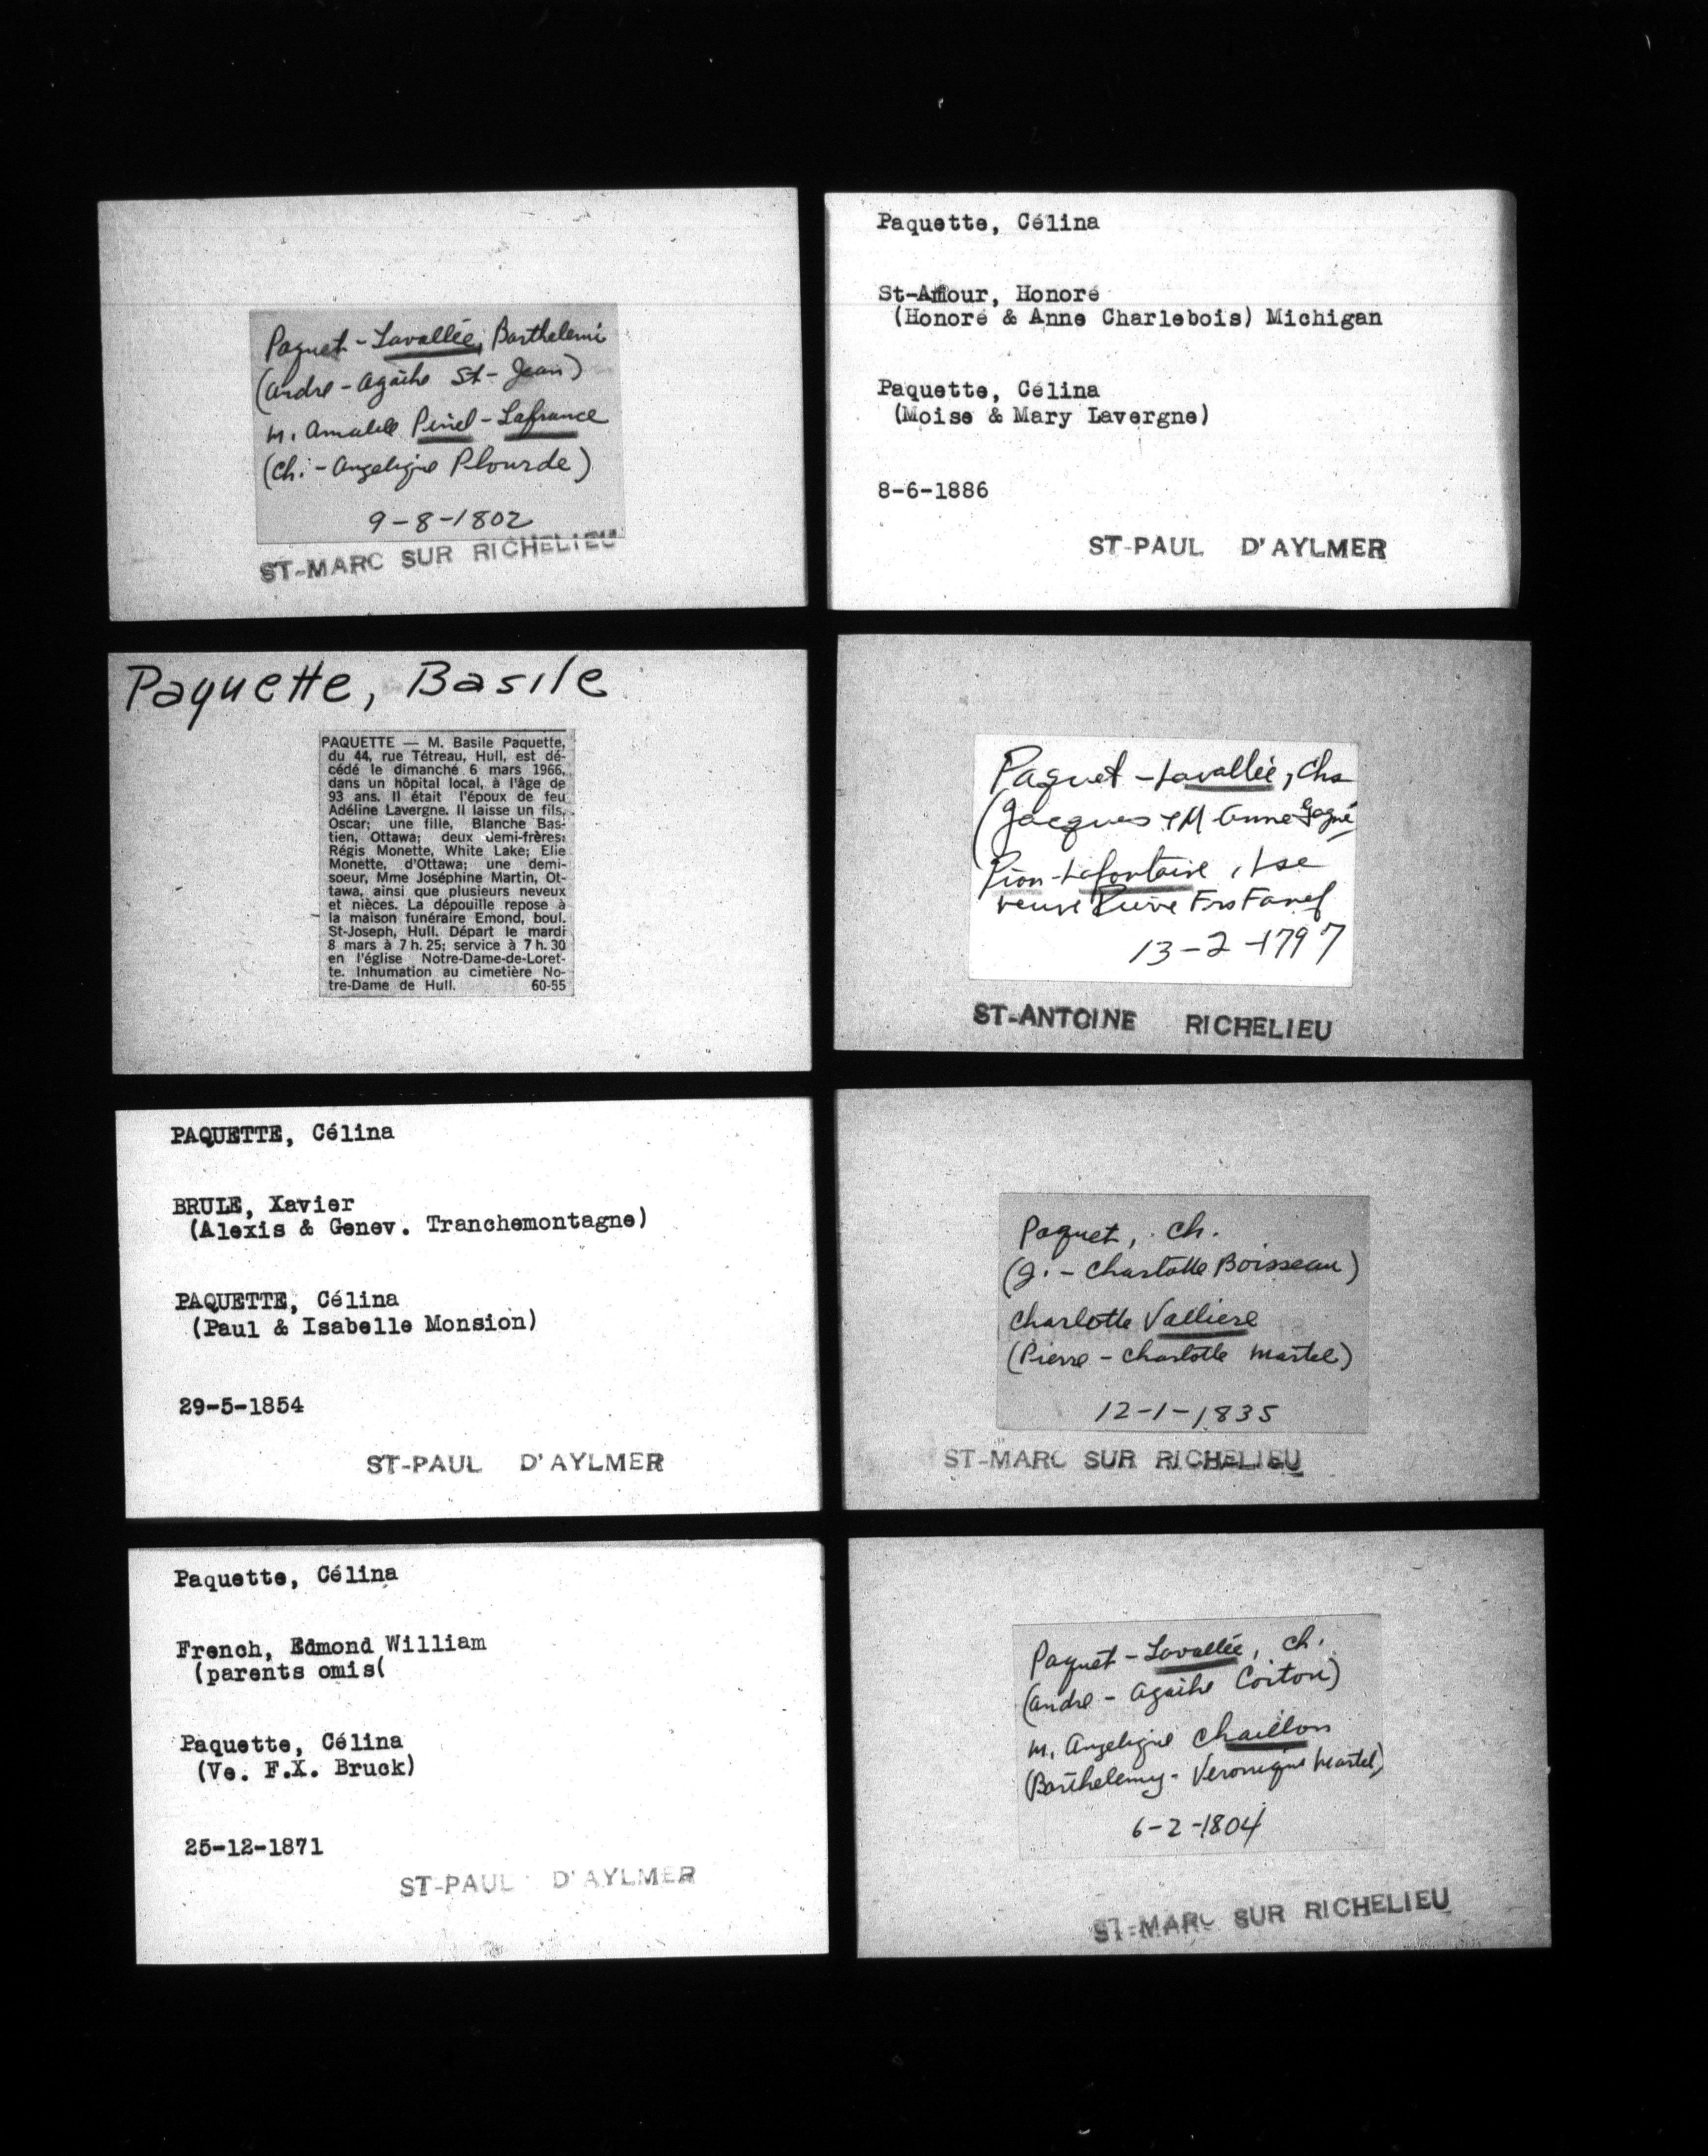 Paquet - Lavallée, Barthelemi
(Andre - Agathe St-Jean)
m. Amable Pinel - Lafrance
(Ch. - Angelique Plourde)
9-8-1802
ST-MARC SUR RICHELIEU
Paquette, Basile
PAQUETTE — M. Basile Paquette,
du 44, rue Tétreau, Hull, est dé-
cédé le dimanche 6 mars 1966,
dans un hôpital local, à l'âge de
93 ans. Il était l'époux de feu
Adéline Lavergne. Il laisse un fils,
Oscar; une fille, Blanche Bas-
tien, Ottawa; deux demi-frères:
Régis Monette, White Lake; Elie
Monette, d'Ottawa; une demi-
soeur, Mme Joséphine Martin, Ot-
tawa, ainsi que plusieurs neveux
et nièces. La dépouille repose à
la maison funéraire Emond, boul.
St-Joseph, Hull. Départ le mardi
8 mars à 7 h. 25; service à 7 h. 30
en l'église Notre-Dame-de-Loret-
te. Inhumation au cimetière No-
tre-Dame de Hull. 60-55
PAQUETTE, Célina
BRULE, Xavier
(Alexis & Genev. Tranchemontagne)
PAQUETTE, Célina
(Paul & Isabelle Monsion)
29-5-1854
ST-PAUL D'AYLMER
Paquette, Célina
French, Edmond William
(parents omis(
Paquette, Célina
(Ve. F.X. Bruck)
25-12-1871
ST-PAUL D'AYLMER
Paquette, Célina
St-Amour, Honoré
(Honoré & Anne Charlebois) Michigan
Paquette, Célina
(Moise & Mary Lavergne)
8-6-1886
ST-PAUL D'AYLMER
Paquet - Lavallée, Chs
(Jacques & M Anne Gagné
Pion - Lafontaine, Lse
veuve Pierre Frs
13-2-1797
ST-ANTOINE RICHELIEU
Paquet, Ch.
(J. - Charlotte Boisseau)
Charlotte Valliere
(Pierre - Charlotte Martel)
12-1-1835
ST-MARC SUR RICHELIEU
Paquet - Lavallée, Ch.
(Andre - Agathe Coiton)
m. Angelique Chaillon
(Barthelemy - Veronique Martel)
6-2-1804
ST-MARC SUR RICHELIEU